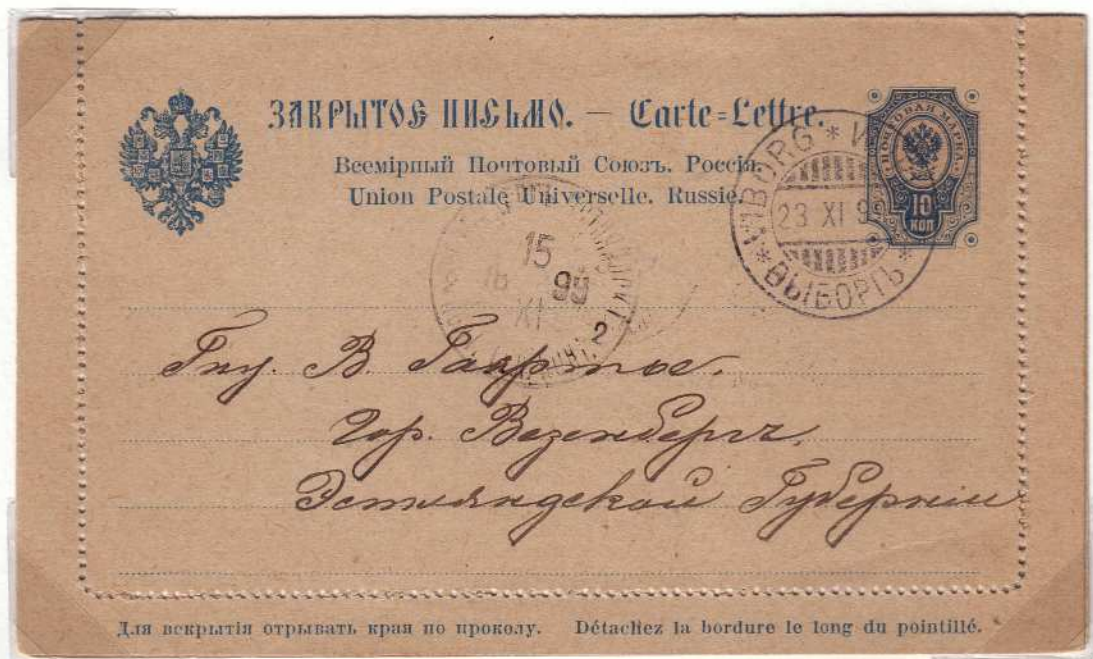 ЗАКРЫТОЕ ПИСЬМО. — Carte=Lettre.
Всемірный Почтовый Союзъ. Россія.
Union Postale Universelle. Russie.
ПОЧТОВАЯ МАРКА.
10
КОП
WIBORG * * ВЫБОРГЪ *
23 XI 9
15
99
XI
2
Гну. В. Гаартое.
Гор. Везенбергъ.
Эстляндской Губерніи
Для вскрытія отрывать края по проколу. Détachez la bordure le long du pointillé.